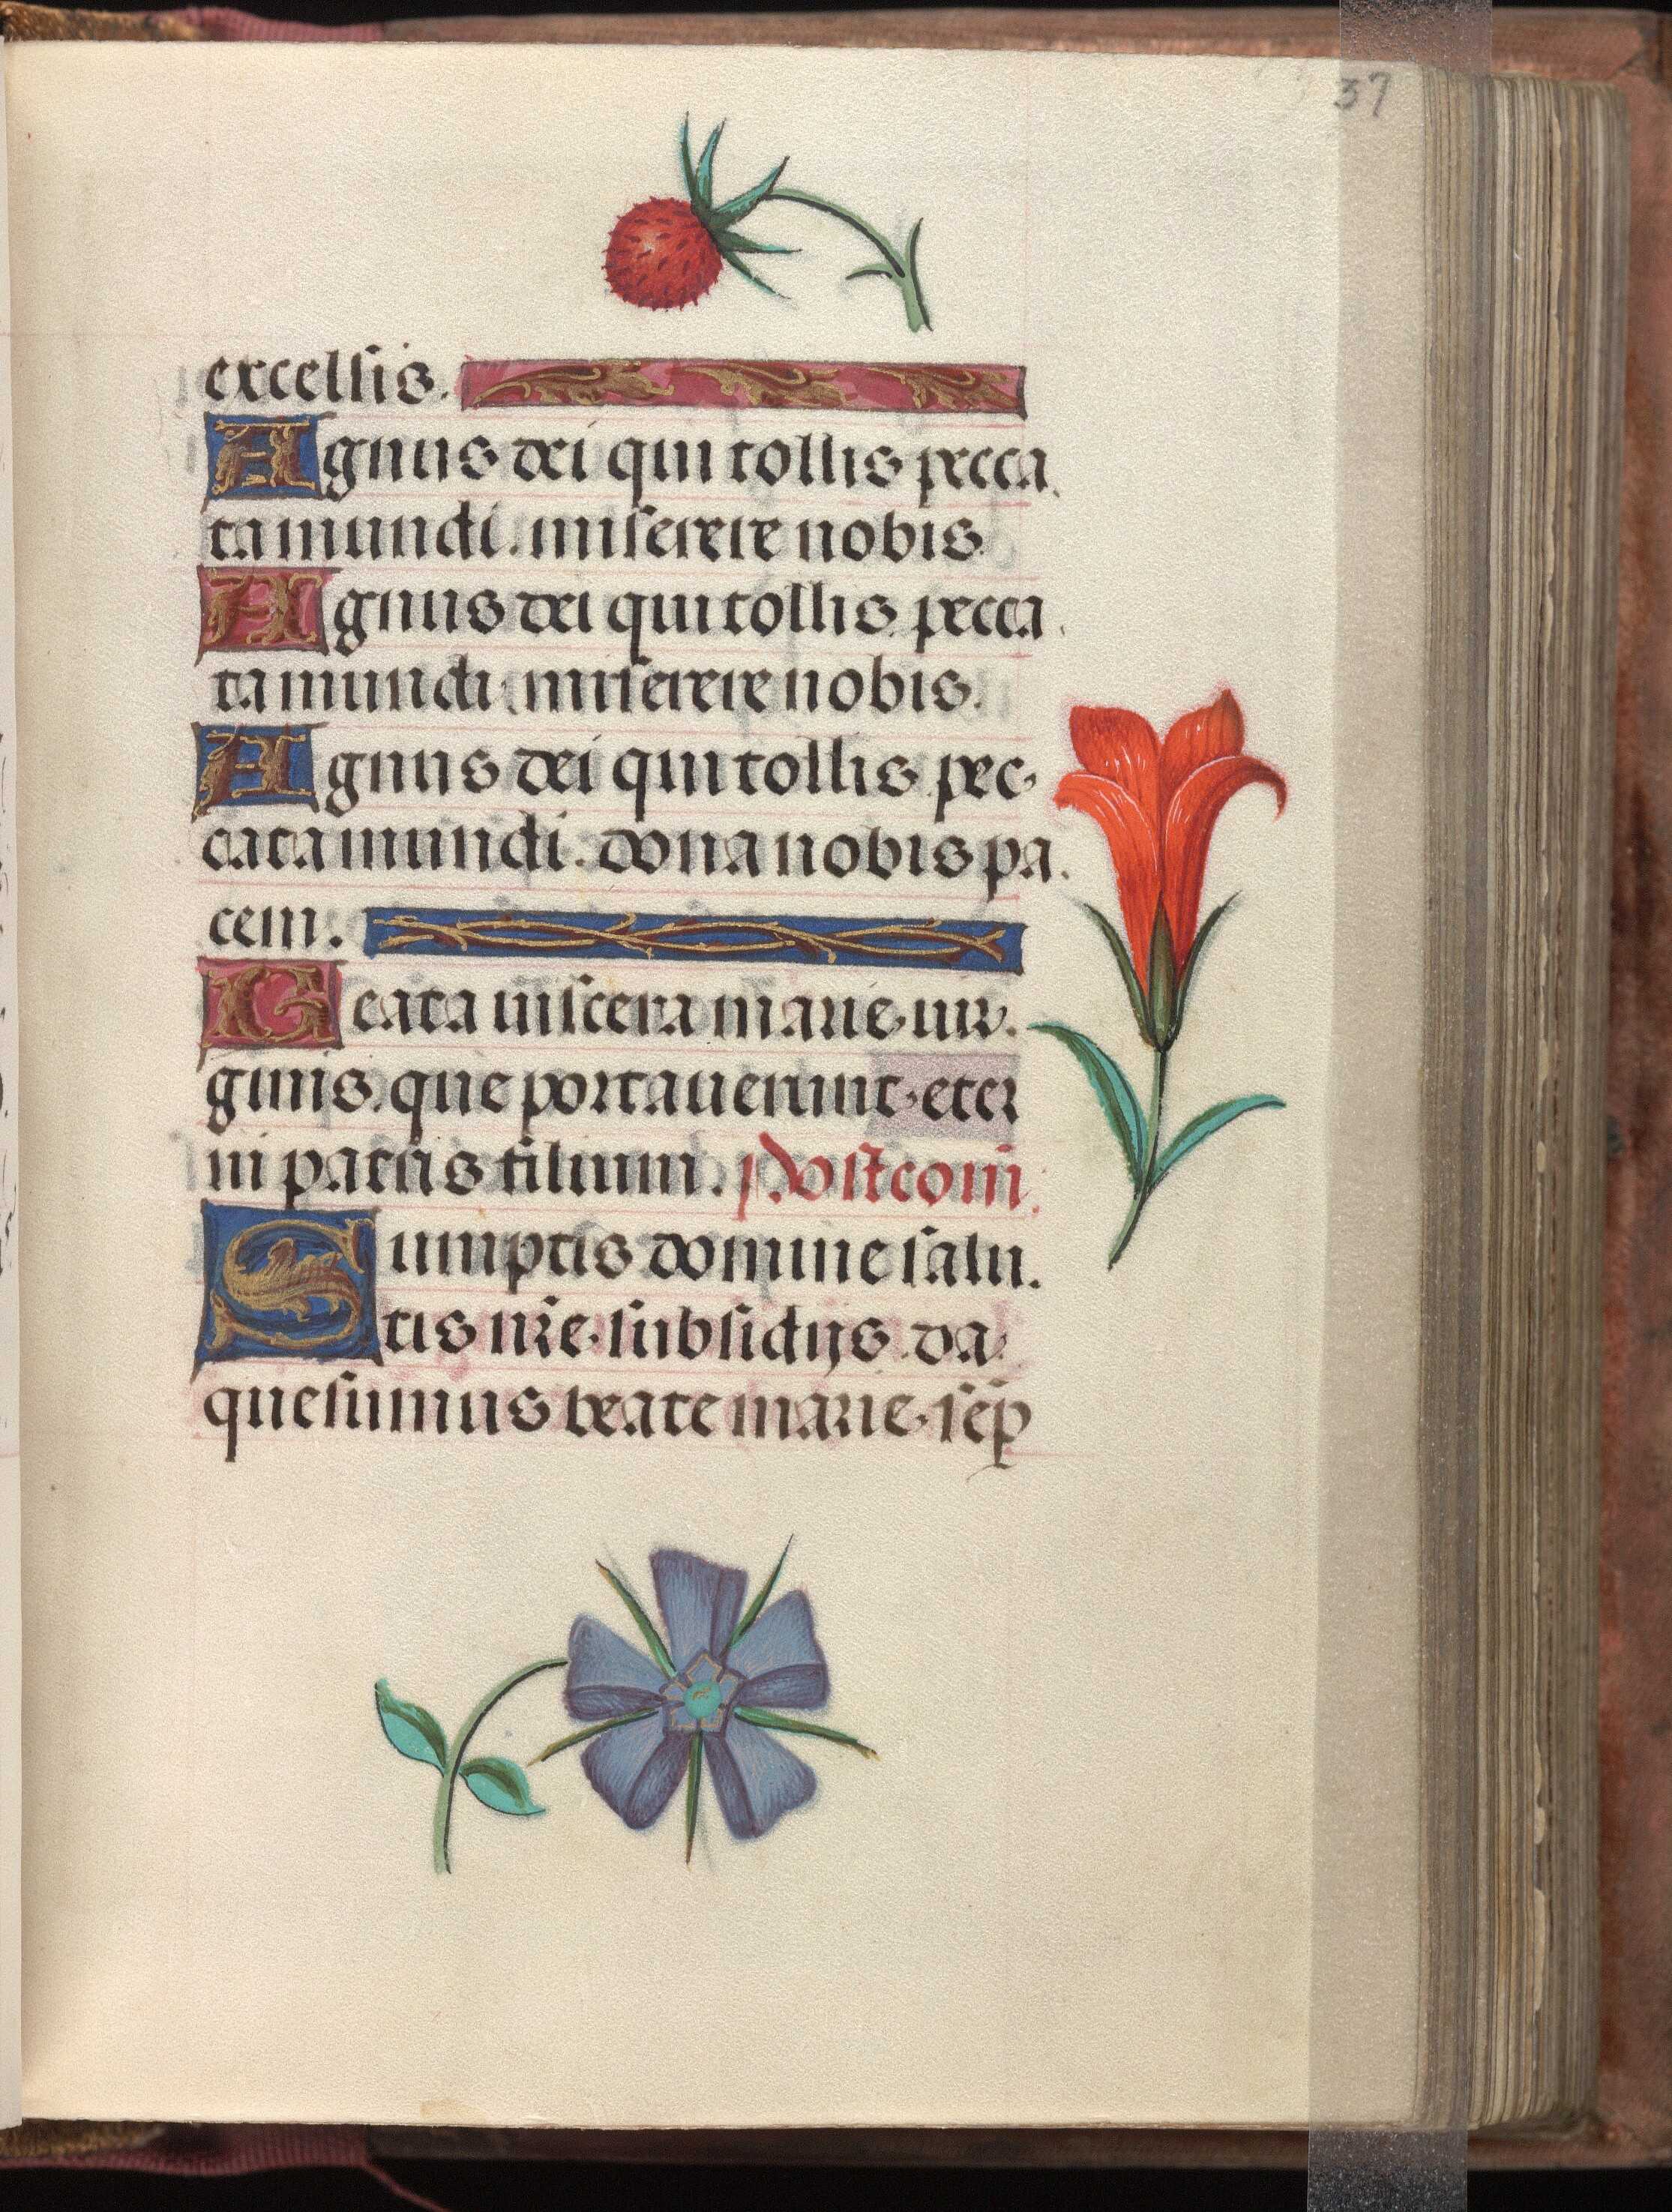 37
excelsis.
Agnus dei qui tollis pecca
ta mundi. miserere nobis
Agnus dei qui tollis pecca
ta mundi. miserere nobis.
Agnus dei qui tollis pec
cata mundi. dona nobis pa
cem.
Beata uiscera marie uir
ginis. que portauerunt. eter
ni patris filium. Postcom̄
Sumptis domine salu
tis nr̄e. subsidijs. da
quesumus beate marie. sēp